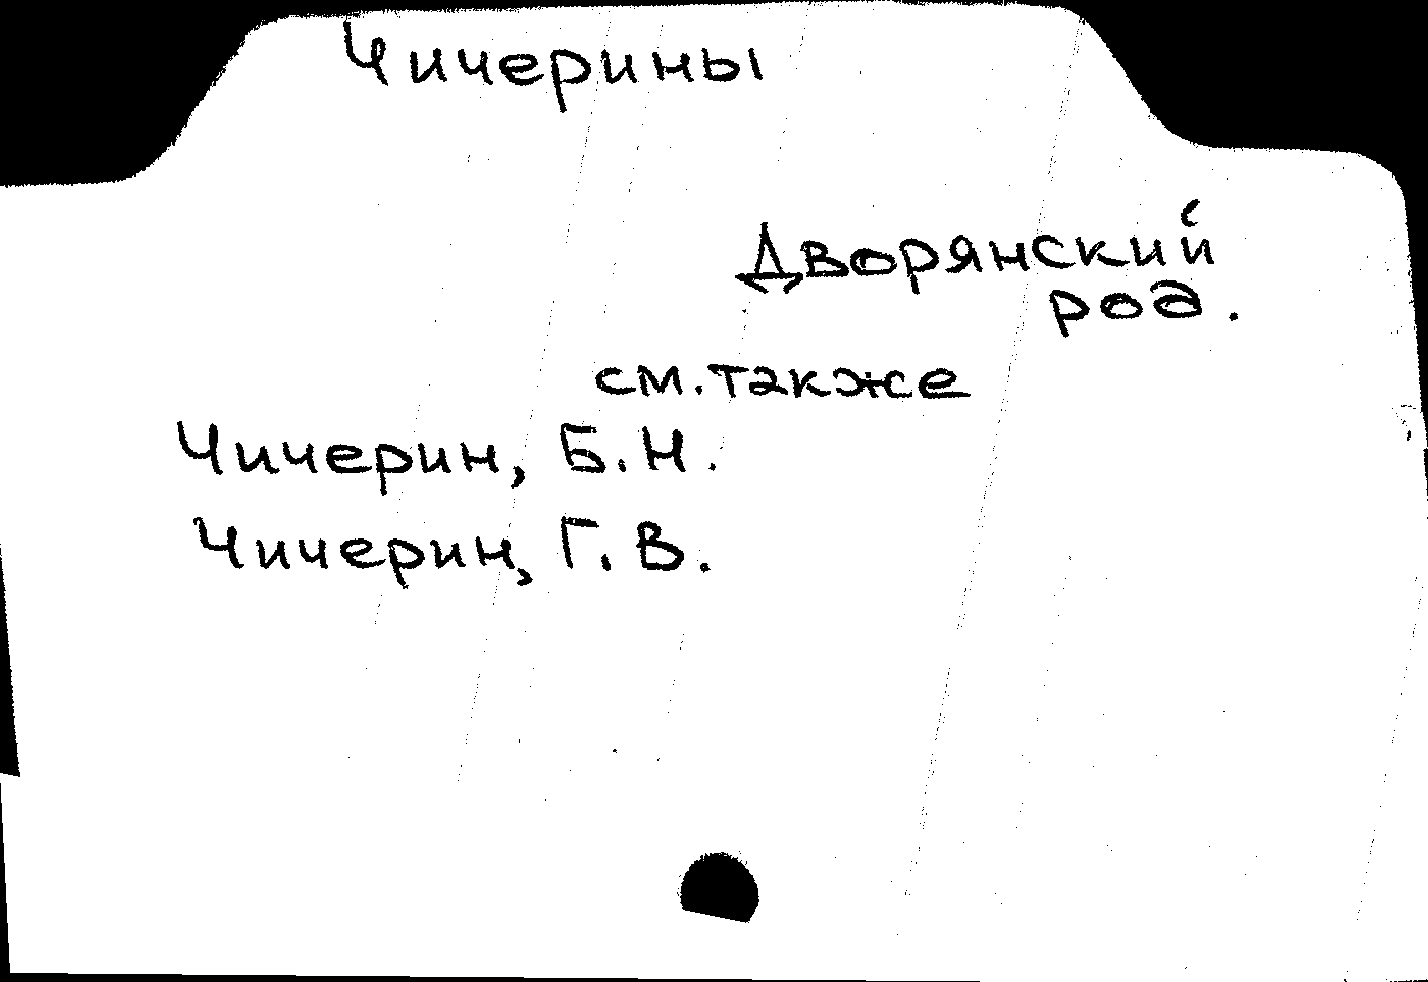 Чичерины
Дворянский
род.
см. также
Чичерин, Б.Н.
Чичерин, Г.В.